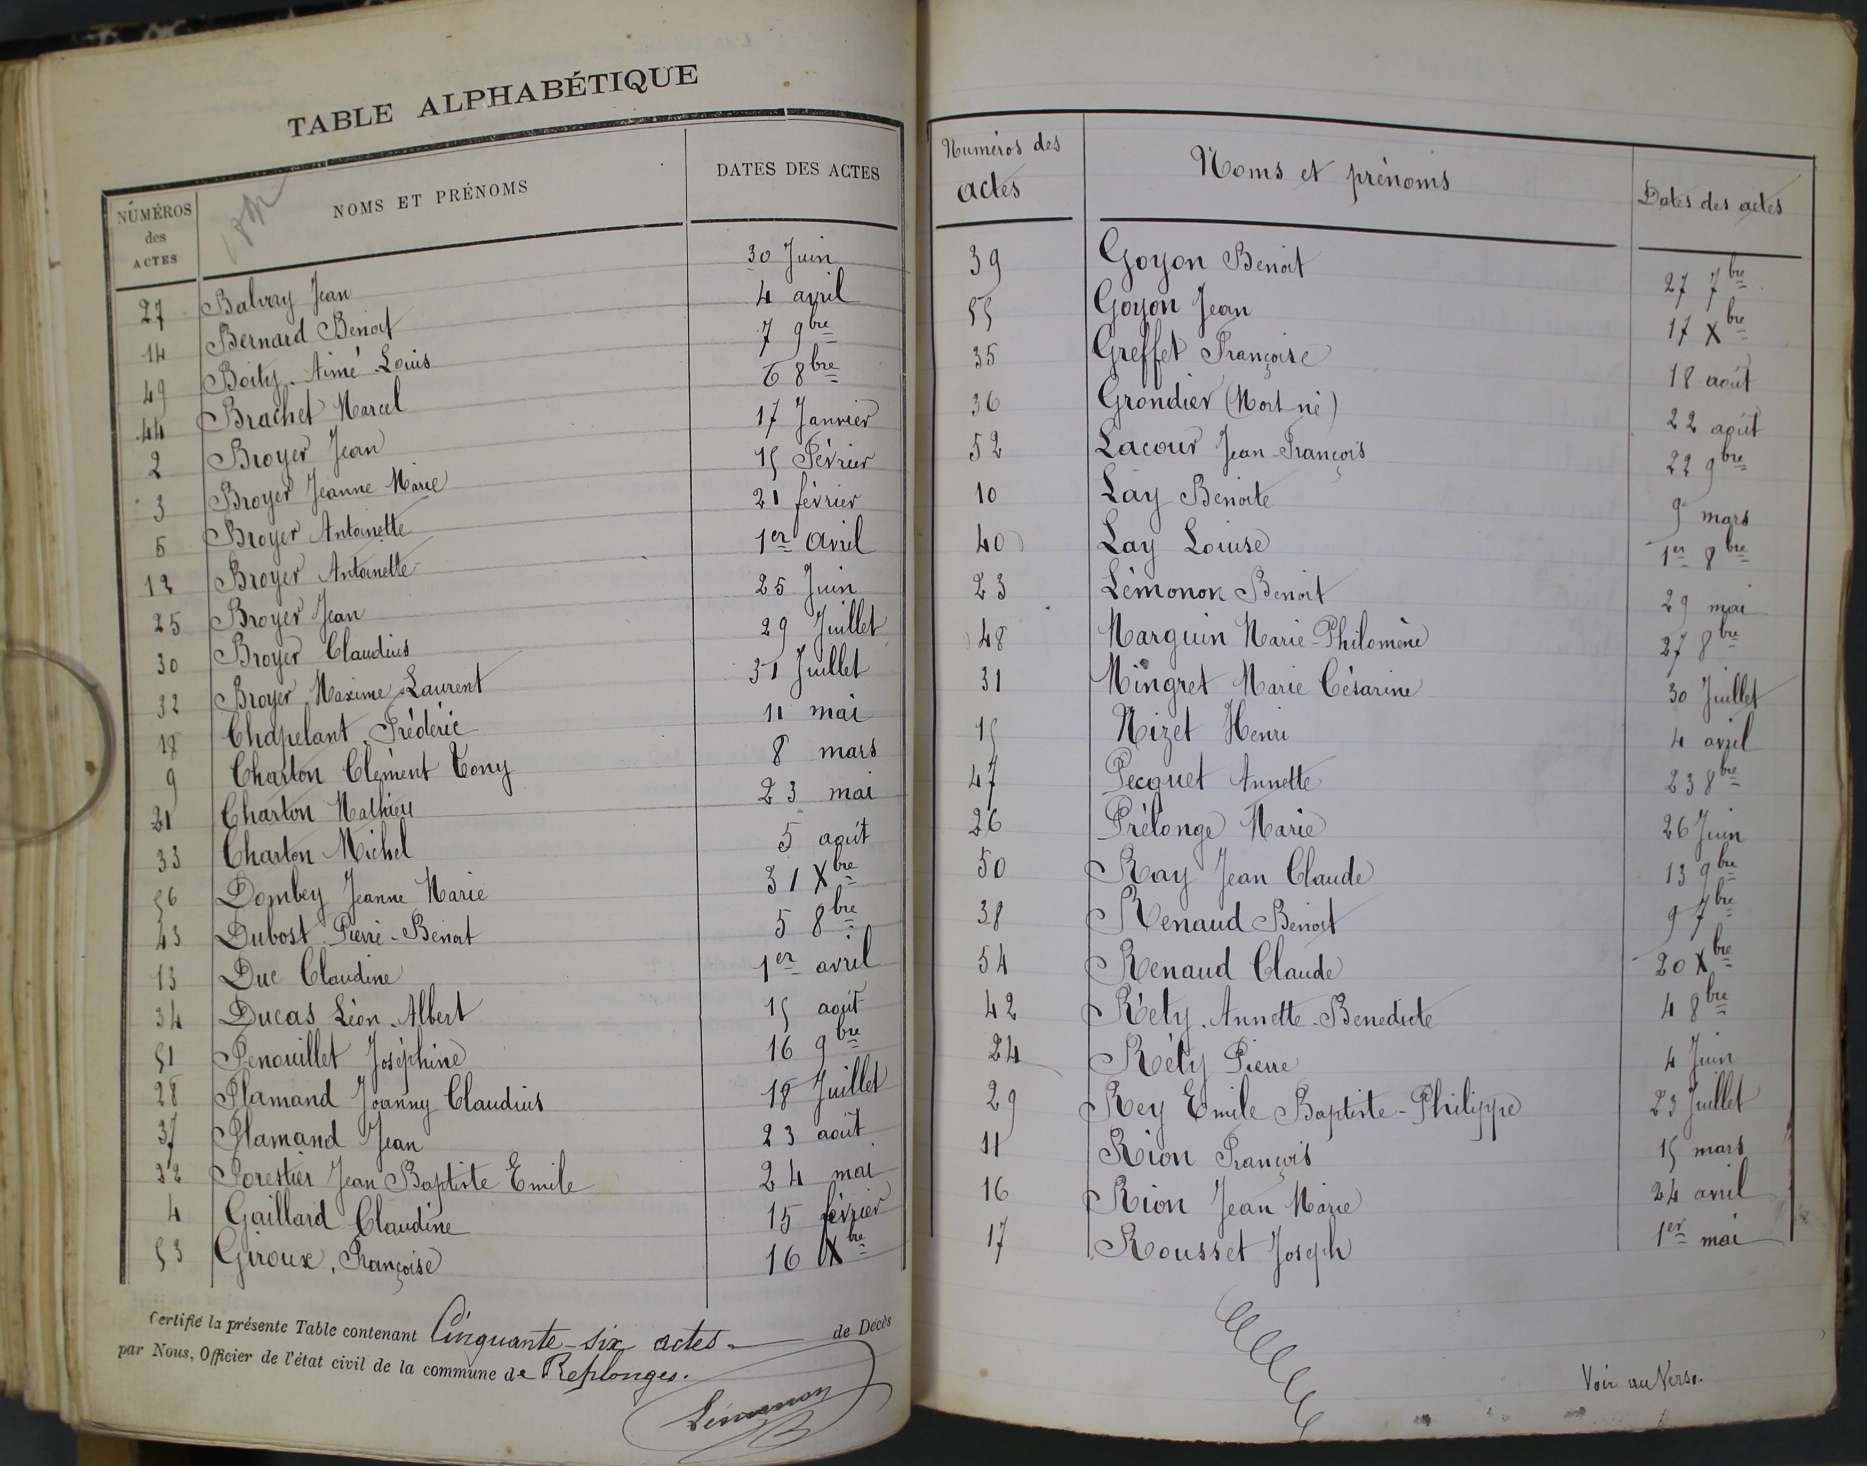 TABLE ALPHABÉTIQUE
NUMÉROS des ACTES NOMS ET PRÉNOMS DATES DES ACTES
27 Balvay Jean 30 Juin
14 Bernard Benoit 4 avril
49 Boity Aimé Louis 7 9bre
44 Brachet Marcel 6 8bre
2 Broyer Jean 17 Janvier
3 Broyer Jeanne Marie 15 Février
5 Broyer Antoinette 21 février
12 Broyer Antoinette 1er avril
25 Broyer Jean 25 Juin
30 Broyer Claudius 29 Juillet
32 Broyer Maxime Laurent 31 Juillet
18 Chapelant Frédéric 11 mai
9 Charton Clément Tony 8 mars
21 Charton Mathieu 23 mai
33 Charton Michel 5 août
56 Dombey Jeanne Marie 31 Xbre
43 Dubost Pierre-Benoit 5 8bre
13 Duc Claudine 1er avril
34 Ducas Léon-Albert 15 août
51 Fenouillet Joséphine 16 9bre
28 Flamand Joanny Claudius 18 Juillet
37 Flamand Jean 23 août
22 Forestier Jean Baptiste Emile 24 mai
4 Gaillard Claudine 15 février
53 Giroux, Françoise 16 Xbre
Certifié la présente Table contenant Cinquante-six actes de Décès
par Nous, Officier de l'état civil de la commune de Replonges.
Lémonon
Numéros des actes Noms et prénoms Dates des actes
39 Goyon Benoit 27 7bre
55 Goyon Jean 17 Xbre
35 Greffet Françoise 18 août
36 Grondier (Mort né) 22 août
52 Lacour Jean-François 22 9bre
10 Lay Benoite 9 mars
40 Lay Louise 1er 8bre
23 Lémonon Benoit 29 mai
48 Marguin Marie-Philomène 27 8bre
31 Mingret Marie Césarine 30 Juillet
15 Nizet Henri 4 avril
47 Pecquet Annette 23 8bre
26 Prélonge Marie 26 Juin
50 Ray Jean Claude 13 9bre
38 Renaud Benoit 9 7bre
54 Renaud Claude 20 Xbre
42 Réty Annette-Benedicte 4 8bre
24 Réty Pierre 4 Juin
29 Rey Emile Baptiste-Philippe 23 Juillet
11 Rion François 15 mars
16 Rion Jean Marie 24 avril
17 Rousset Joseph 1er mai
Voir au Verso.